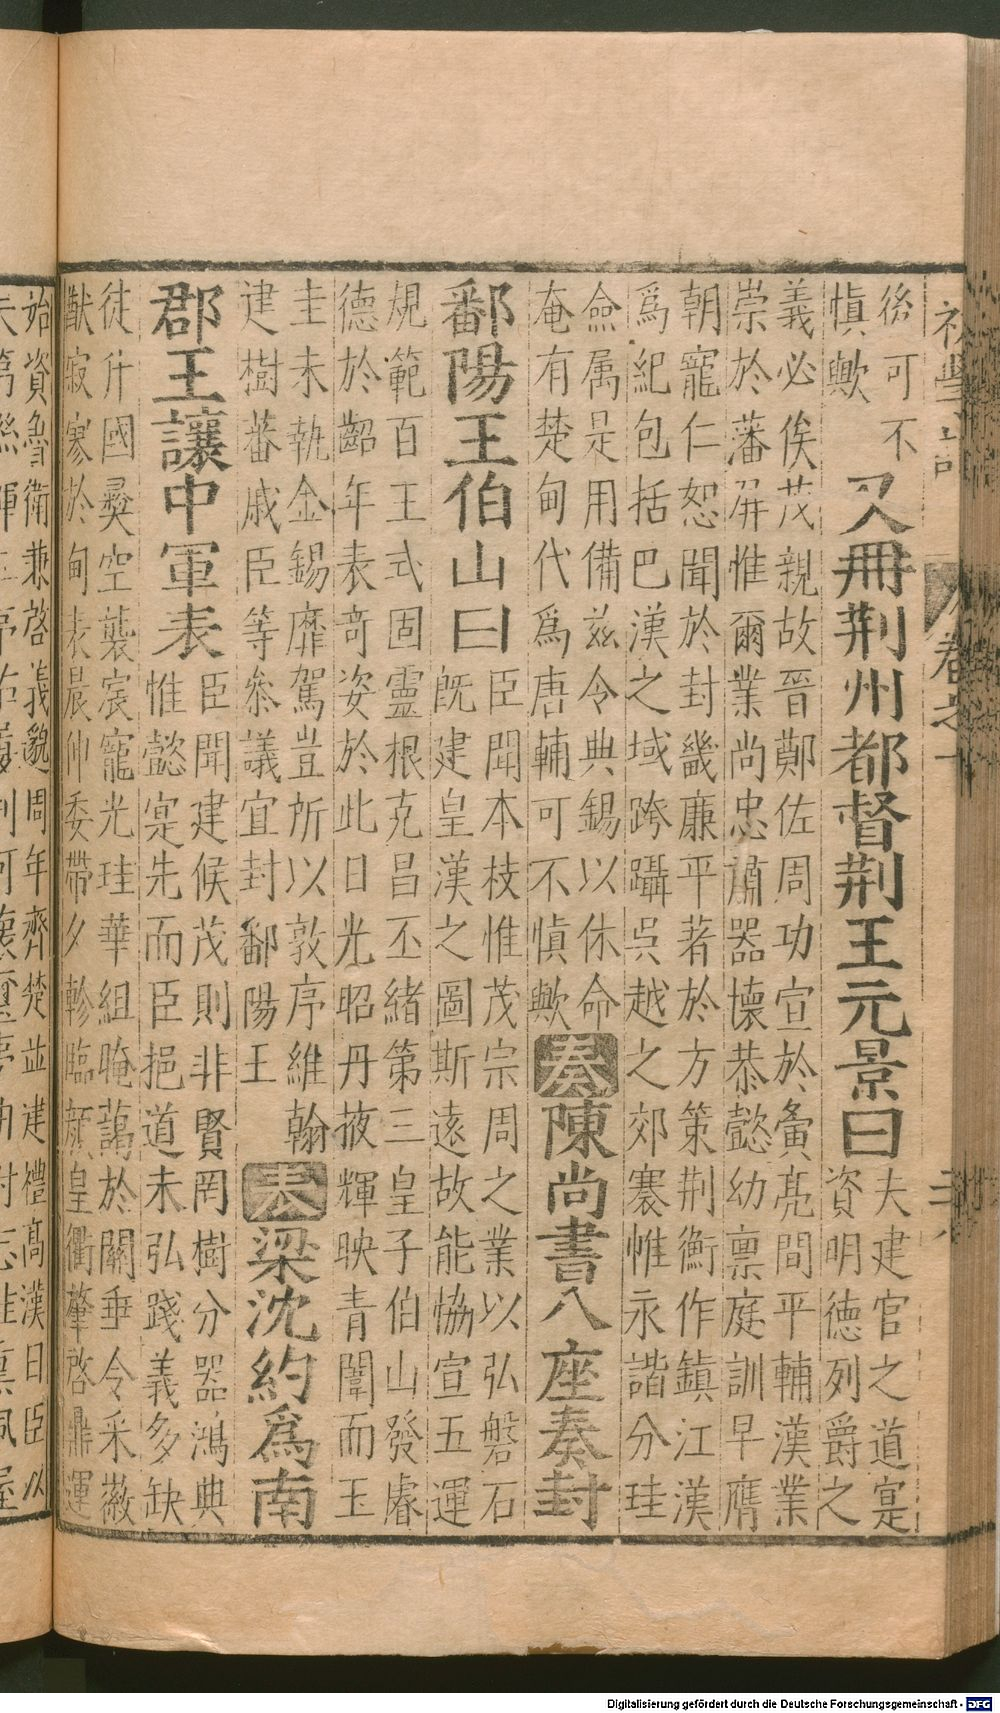 初學記
卷之十
後可不
慎歟
又冊荊州都督荊王元景曰
夫建官之道寔
資明德列爵之
義必俟茂親故晉鄭佐周功宣於彝亮間平輔漢業
崇於藩屏惟爾業尚忠肅器懷恭懿幼禀庭訓早膺
朝寵仁恕聞於封畿廉平著於方策荆衡作鎮江漢
爲紀包括巴漢之域跨躡吳越之郊褰惟永諧分珪
僉属是用備兹令典錫以休命
奄有楚甸代爲唐輔可不慎歟
奏陳尚書八座奏封
鄱陽王伯山曰
臣聞本枝惟茂宗周之業以弘磐石
既建皇漢之圖斯遠故能恊宣五運
規範百王式固靈根克昌丕緒第三皇子伯山發睿
德於齠年表奇姿於此日光昭丹掖輝映青闈而玉
圭未執金錫靡駕豈所以敦序維翰
建樹蕃戚臣等叅議宜封鄱陽王
表梁沈約爲南
郡王讓中軍表
臣聞建候茂則非賢罔樹分器鴻典
惟懿寔先而臣挹道未弘踐義多缺
徒斤國彛空襲宸寵光珪華組晻藹於闕垂令采徽
猷寂寥於甸表晨仰委帶夕軫臨顏皇衢肇啓鼎運
始資魯衛兼啓義貌周年齊楚並建禮高漢日臣以
Digitalisierung gefördert durch die Deutsche Forschungsgemeinschaft - DFG